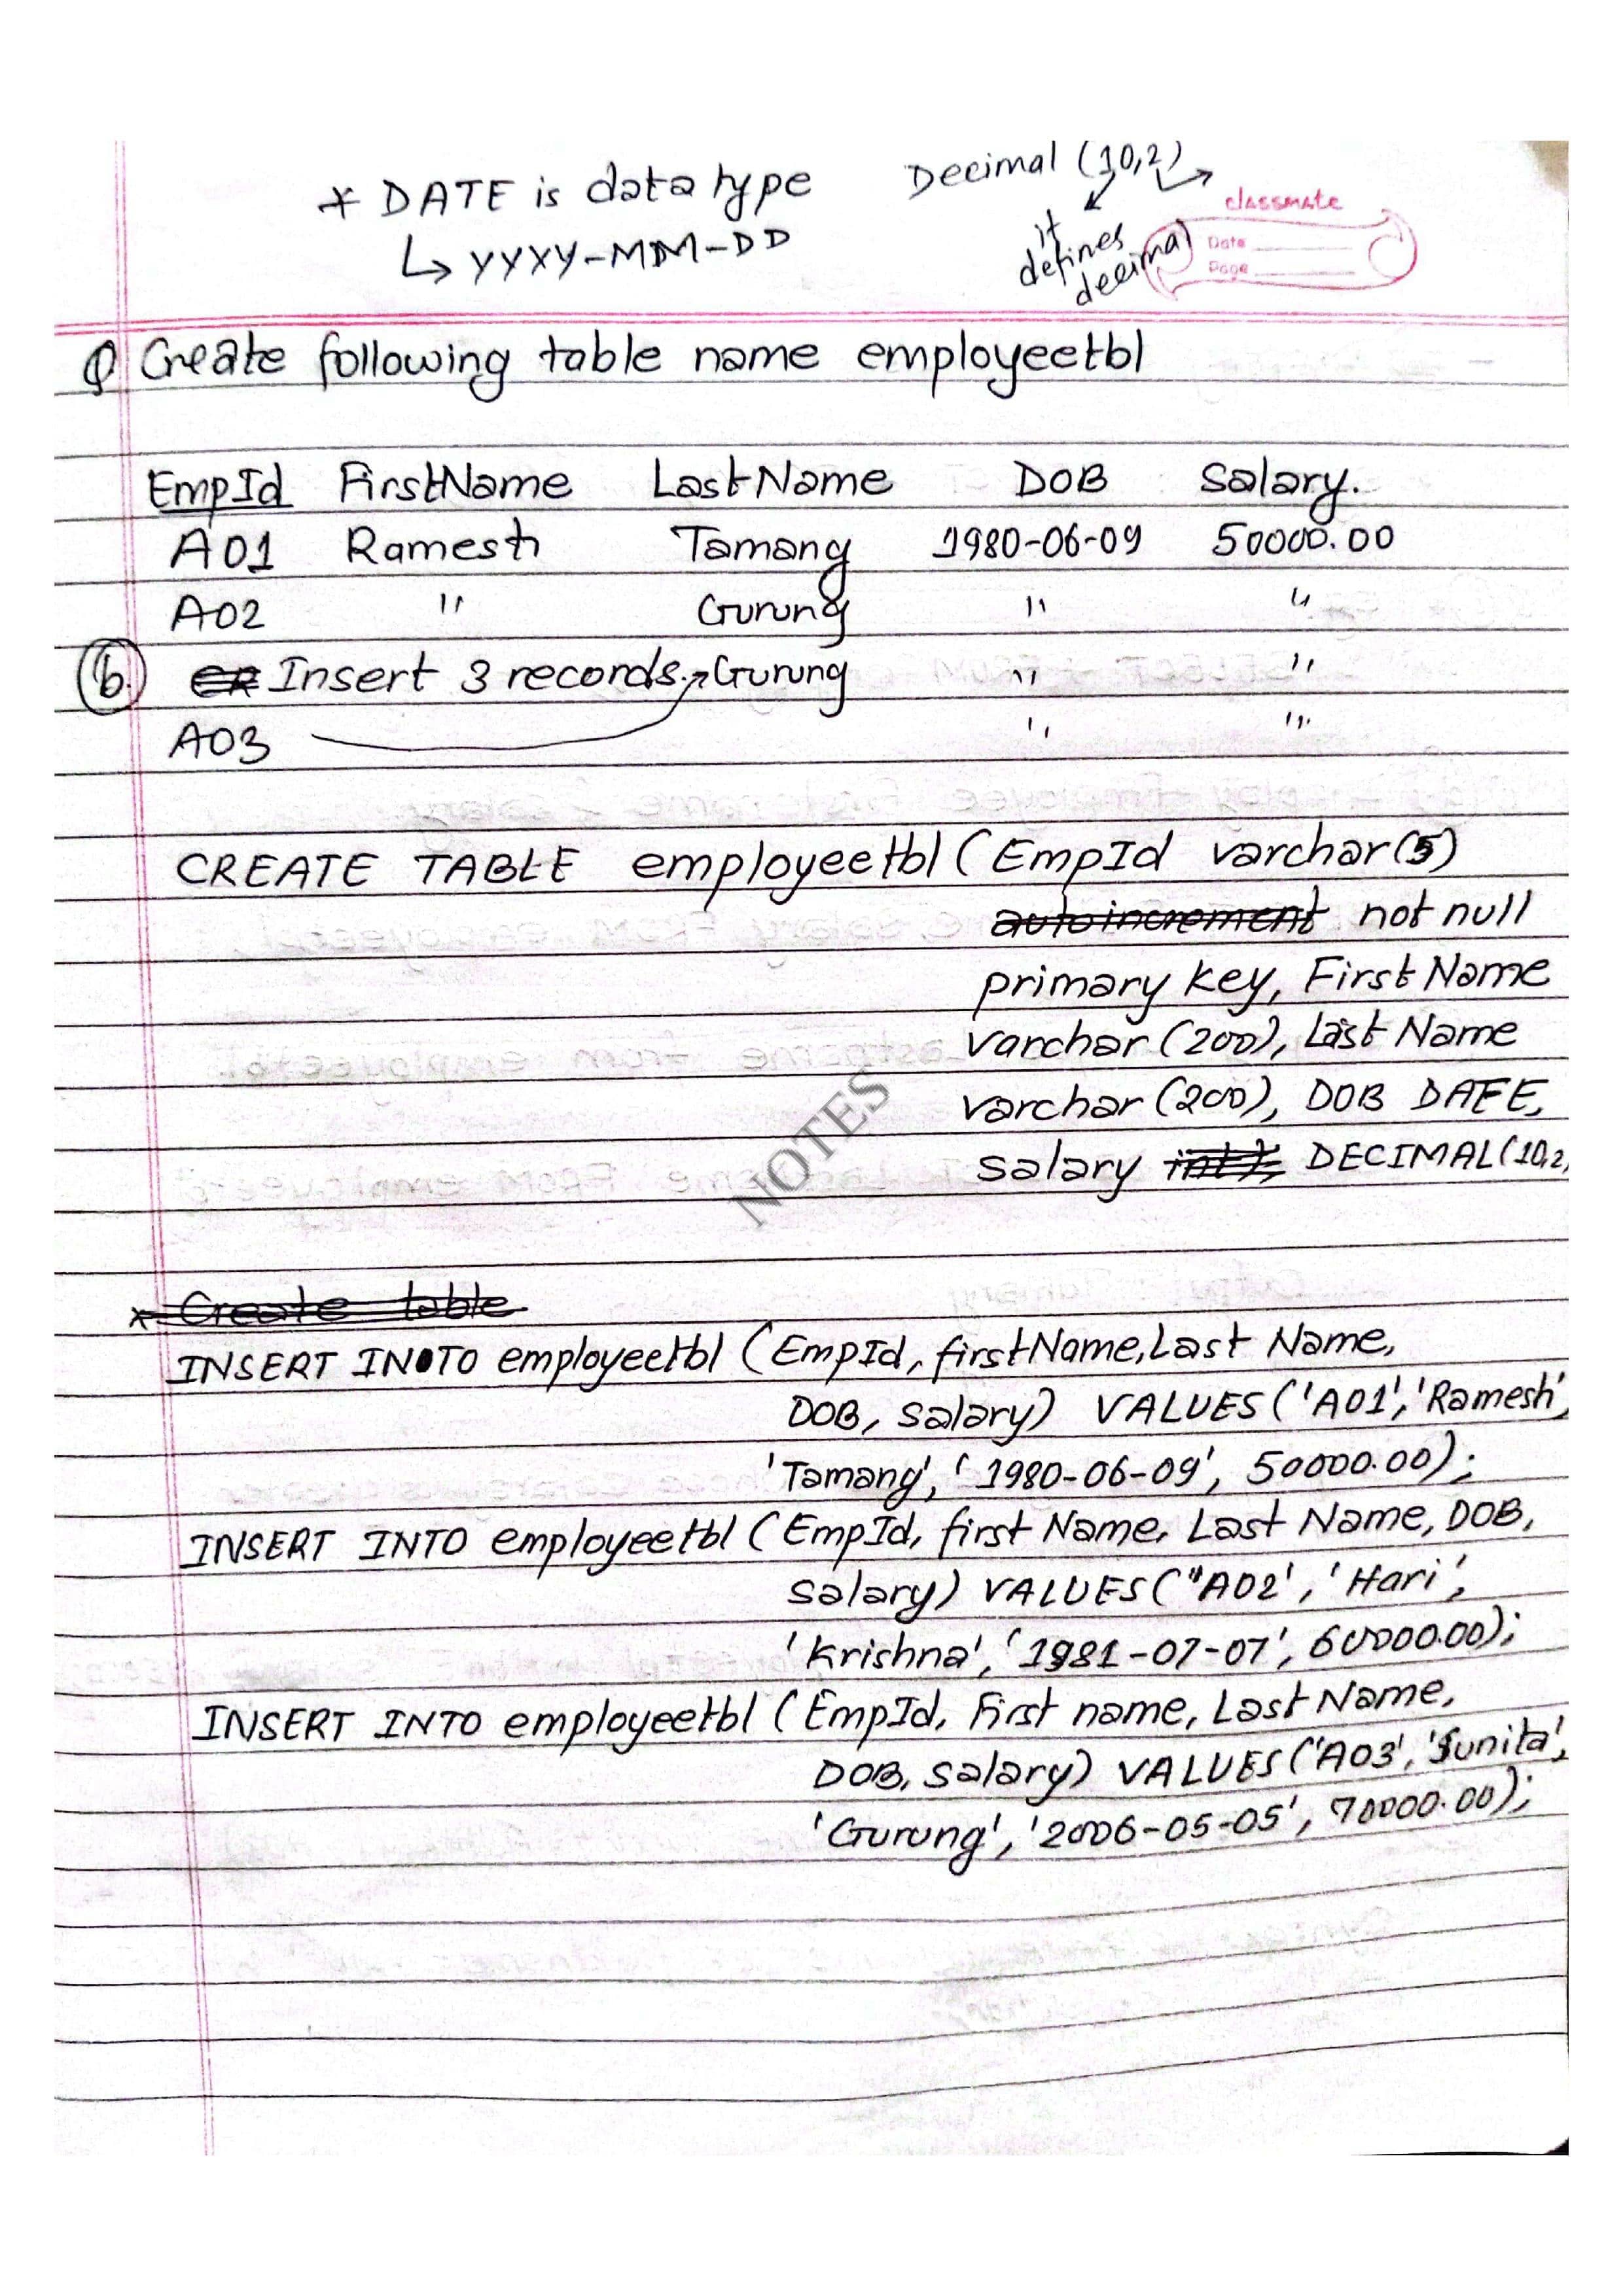 * DATE is data type
↳ YYYY-MM-DD
Decimal (10,2)
it
defines
decimal
classmate
Date
Page
Q Create following table name employeetbl
EmpId FirstName LastName DOB Salary.
A01 Ramesh Tamang 1980-06-09 50000.00
A02 " Gurung " "
(b.) Insert 3 records. Gurung " "
A03 " "
CREATE TABLE employeetbl (EmpId varchar(5)
autoincrement not null
primary key, First Name
varchar (200), Last Name
varchar (200), DOB DATE,
salary int); DECIMAL(10,2,
* Create table
INSERT INTO employeetbl (EmpId, firstName, Last Name,
DOB, salary) VALUES ('A01', 'Ramesh',
'Tamang', '1980-06-09', 50000.00);
INSERT INTO employeetbl (EmpId, first Name, Last Name, DOB,
salary) VALUES ('A02', 'Hari',
'Krishna', '1981-07-07', 60000.00);
INSERT INTO employeetbl (EmpId, First name, Last Name,
DOB, salary) VALUES ('A03', 'Sunita',
'Gurung', '2006-05-05', 70000.00);
NOTES